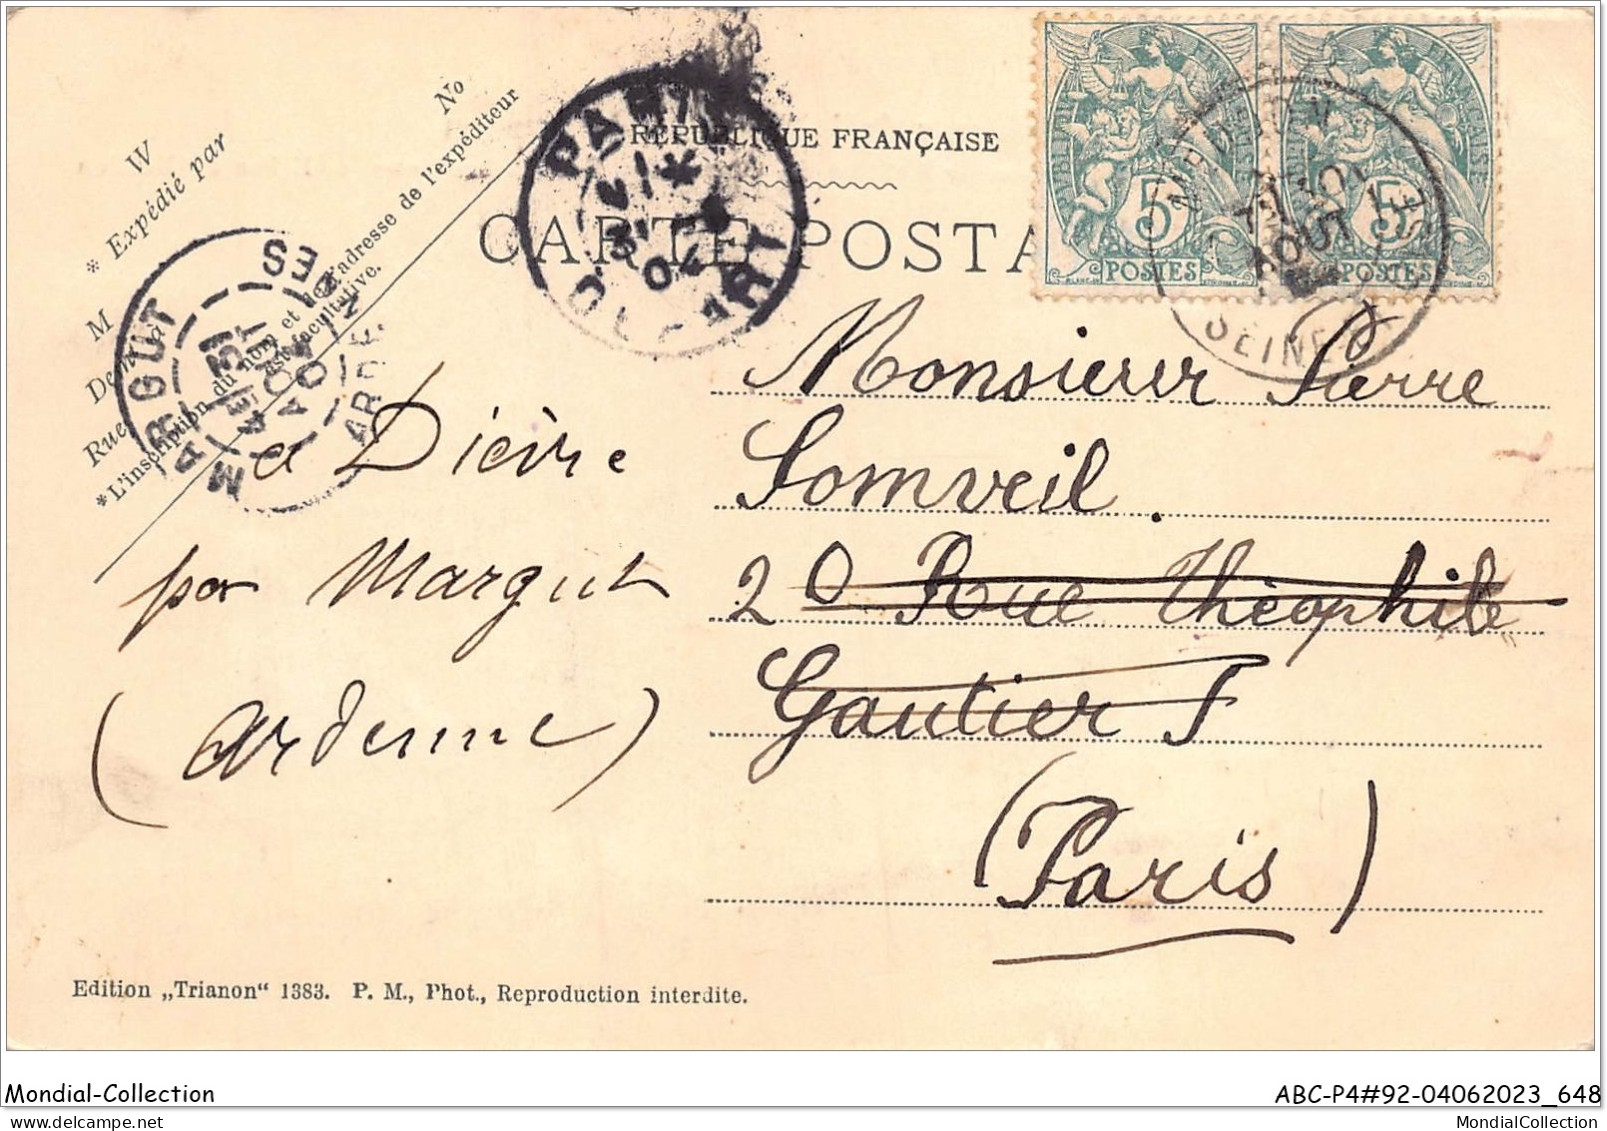 RÉPUBLIQUE FRANÇAISE
CARTE POSTA
No
W
* Expédié par
M
Rue
*L'inscription du nom et de l'adresse de l'expéditeur
est facultative.
PARIS
DEPART
5
POSTES
5
POSTES
MEUDON
AOUT
SEINE
MARGUT
ARDENNES
Monsieur Pierre
Somveil.
20 Rue Théophile
Gautier
(Paris)
a Dièvre
par Margut
(Ardenne)
Edition „Trianon“ 1383. P. M., Phot., Reproduction interdite.
Mondial-Collection
ABC-P4#92-04062023_648
MondialCollection